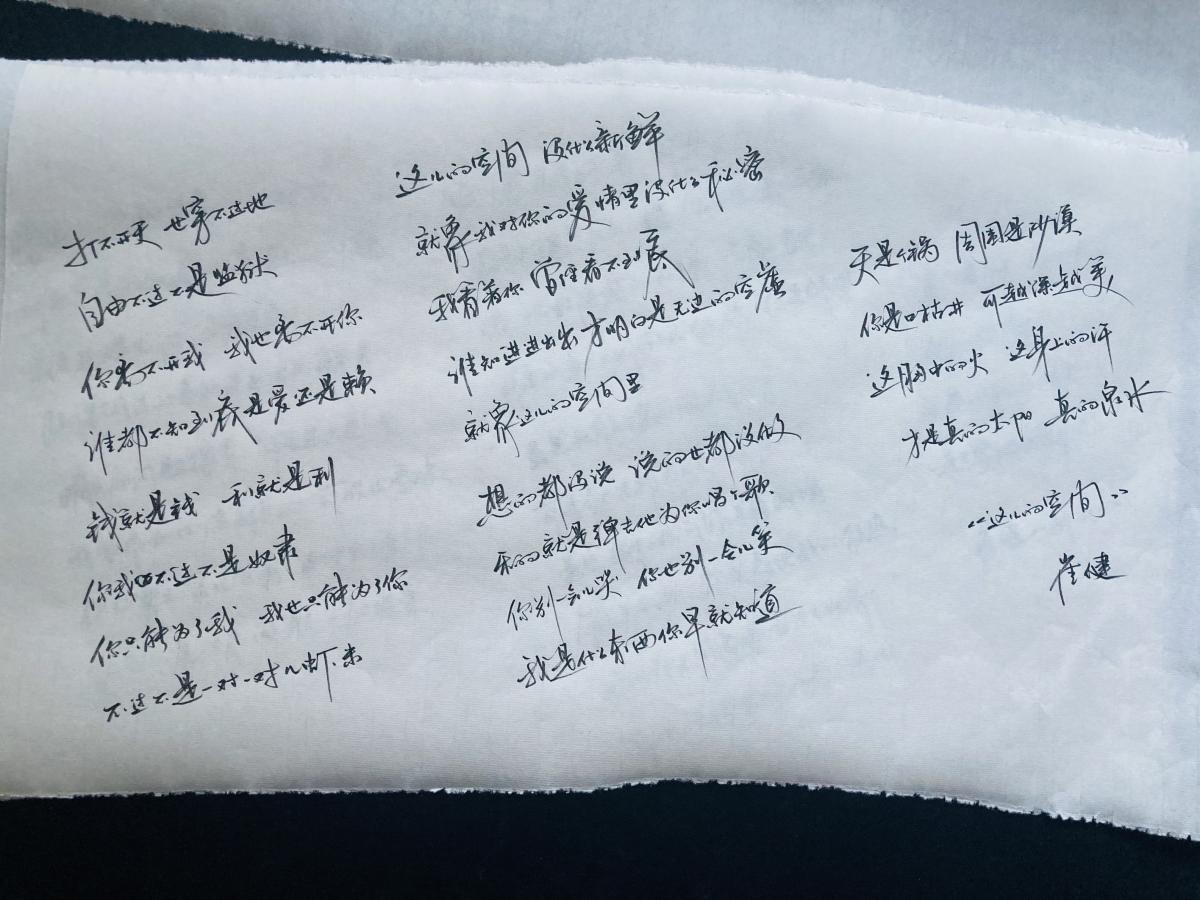 打不开天 也穿不过地
自由不过不是监狱
你离不开我 我也离不开你
谁都不知到底是爱还是赖
钱就是钱 利就是利
你我不过不是奴隶
你只能为了我 我也只能为了你
不过不是一对一对儿虾米
这儿的空间 没什么新鲜
就象我对你的爱情里没什么秘密
我看着你 曾经看不到底
谁知进进出出才明白是无边的空虚
就象这儿的空间里
想的都没说 说的也都没做
乐的就是弹吉他为你唱个歌
你别一会儿哭 你也别一会儿笑
我是什么东西你早就知道
天是个锅 周围是沙漠
你是口枯井 可越深越美
这胸中的火 这身上的汗
才是真的太阳 真的泉水
《这儿的空间》
崔健